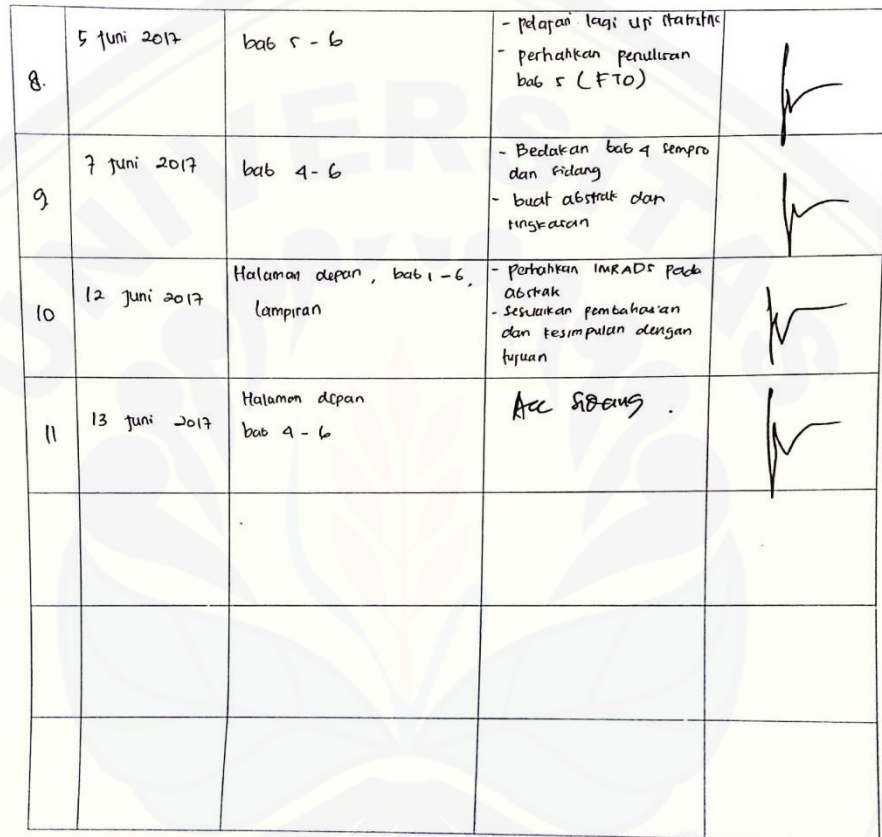 8.
5 Juni 2017
bab 5 - 6
- pelajari lagi uji statistik
- perhatikan penulisan
bab 5 (FTO)
9
7 Juni 2017
bab 4-6
- Bedakan bab 4 sempro
dan sidang
- buat abstrak dan
ringkasan
10
12 Juni 2017
Halaman depan, bab 1-6,
lampiran
- perhatikan IMRADS pada
abstrak
- Sesuaikan pembahasan
dan kesimpulan dengan
tujuan
11
13 Juni 2017
Halaman depan
bab 4-6
Acc Sidang.
UNIVERSITAS